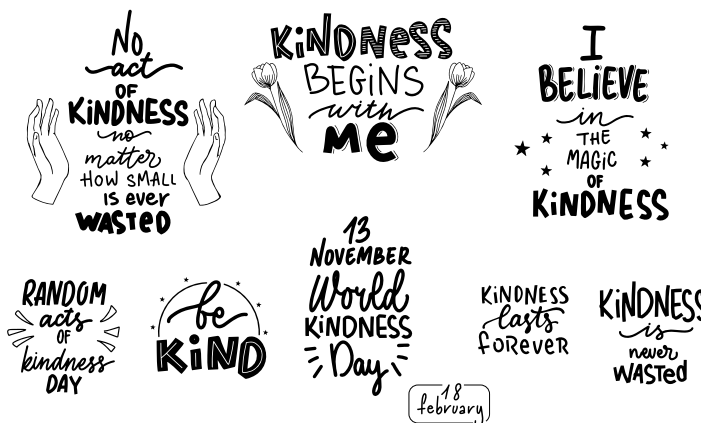 No
act
OF
KiNDNESS
no
matter
HOW SMALL
is ever
WASTED
KiNDNess
BEGiNS
with
Me
I
BELiEVE
in
THE
MAGiC
OF
KiNDNESS
RANDOM
acts
OF
kindness
DAY
be
KiND
13
NOVEMBER
World
KiNDNESS
Day
18
february
KiNDNESS
lasts
foREVER
KiNDNESS
is
never
WASTed